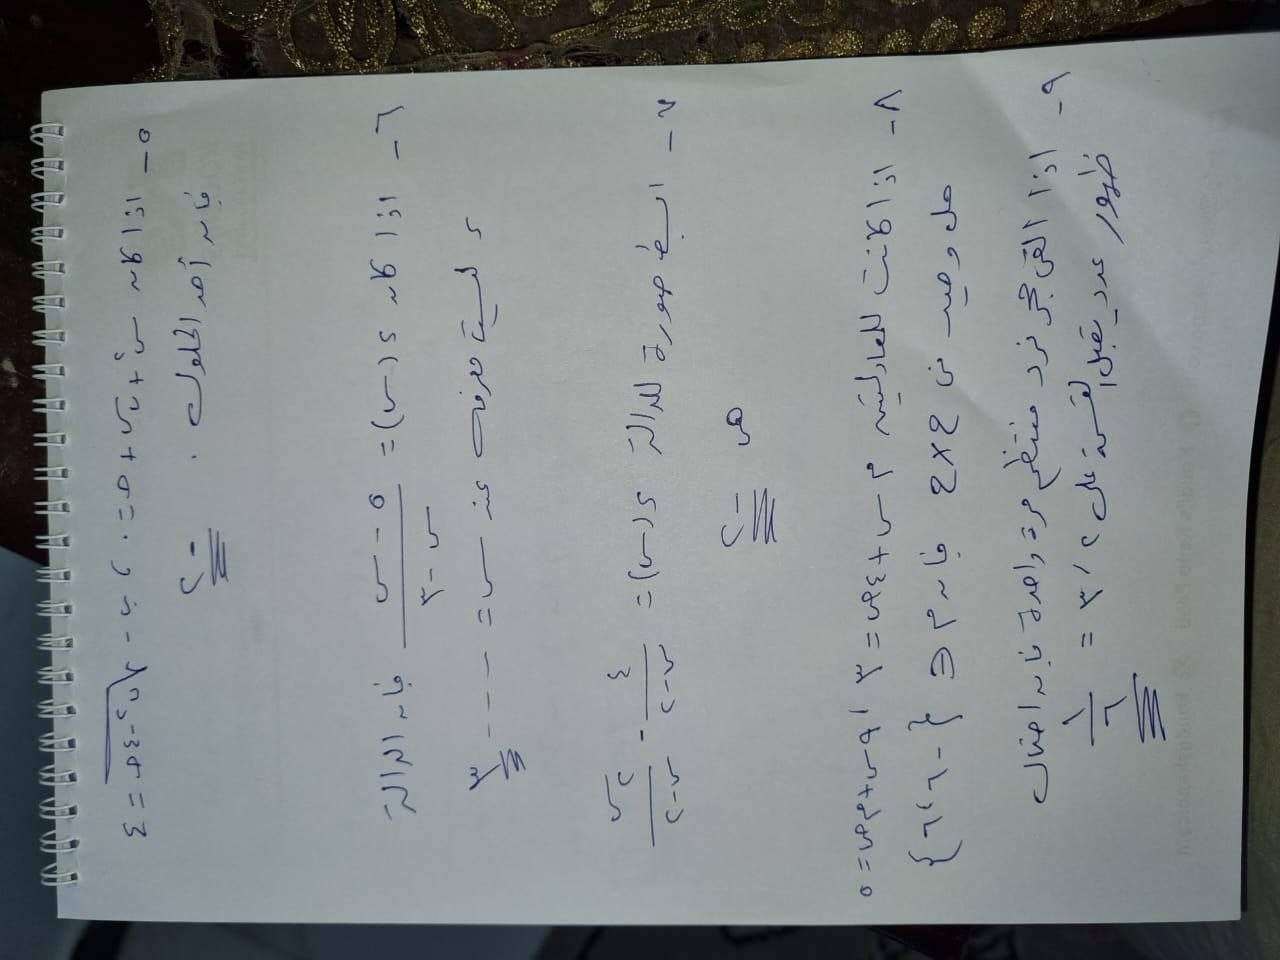 ٥ - اذا كان س٢ + ب س + حـ = ٠ ، √ب٢ - ٤حـ = ٤
فإن أحد الحلول .
-٢
٦ - اذا كان د(س) = (س - ٥) / (س - ٣) فإن الدالة
د ليست معرفة عند س = ----
٣
٧ - ابسط صورة للدالة د(س) = ٤ / (س-٢) - ٢س / (س-٢)
هى
-٢
٨ - اذا كانت للمعادلتين م س + ٤ص = ٣ ، ٩س + م ص = ٥
حل وحيد فى ح×ح فإن م ∉ {-٦،٦}
٩ - اذا القى حجر نرد منتظم مرة واحدة فإن احتمال
ظهور عدد يقبل القسمة على ٢ ، ٣ = ١/٦